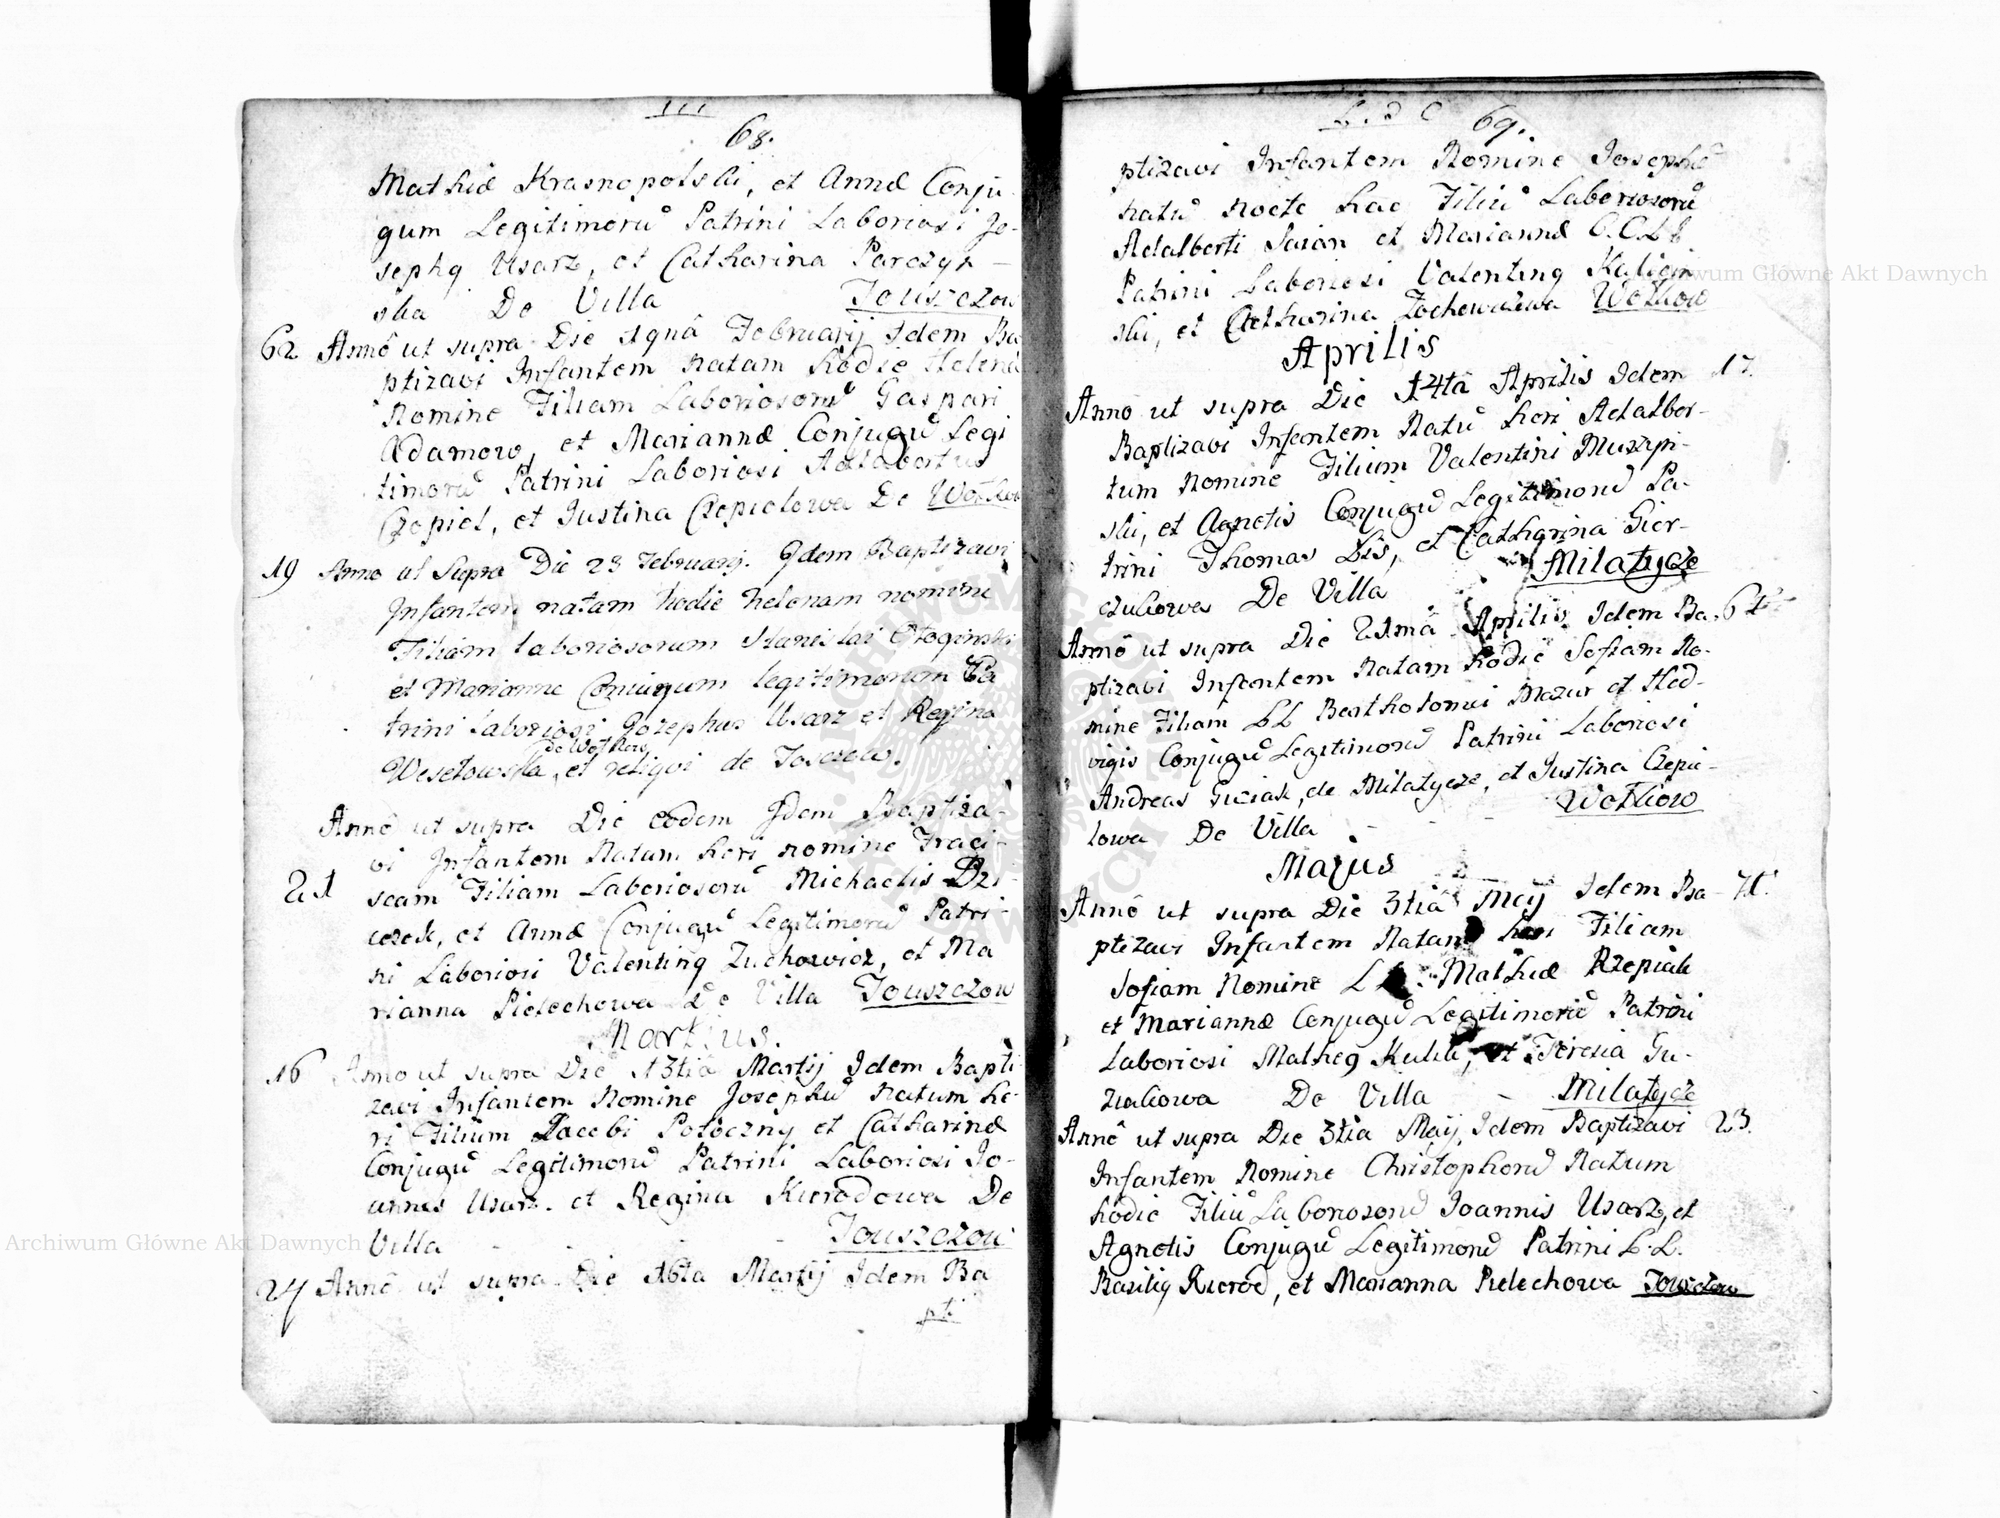 68.
Mathiæ Krasnopolski, et Annæ Conju-
gum Legitimorū Patrini Laboriosi Jo-
sephq Usarz, et Catharina Parczyn-
ska De Villa Touszczow
62 Annô ut supra Die Februarij Idem Ba
ptizavi Infantem Natam hôdie Helenā
Nomine Filiam Laboriosorū Gaspari
Adamow, et Mariannæ Conjugū Legi
timorū Patrini Laboriosi Adalbertus
Czepiel, et Justina Czepielowa De Wołkow
19 Anno ut Supra Die 23 Februarij. Idem Baptizavi
Infantem natam hodie helenam nomine
Filiam laboriosorum Stanislai
et Marianne Coniugum legitimorum Pa
trini laboriosi Josephus Usarz et Regina
de Wołkow
Wesełowska, et reliqvi de
Annô ut supra Die eôdem Idem Baptiza-
vi Infantem Natam heri nomine Franci-
21 scam Filiam Laboriosorū Michaelis Dzi-
czek, et Annæ Conjugū Legitimorū Patri-
ni Laboriosi Valentinq Zuchowicz, et Ma
rianna Pielechowa De Villa Touszczow
Martius.
16 Anno ut supra Die 13tiâ Martij Idem Bapti-
zavi Infantem Nomine Josephū Natum he-
ri Filium Jacobi Potoczny et Catharinæ
Conjugū Legitimorū Patrini Laboriosi Jo-
annes Usarz. et Regina Kierodowa De
Villa - - - Touszczow
24 Annô ut supra Die 16ta Martij Idem Ba
pti
69.
ptizavi Infantem Nomine Josephū
natū nocte hac Filiū Laboriosorū
Adalberti et Mariannæ C.C.L.L.
Patrini Laboriosi Valentinq
ski, et Catharina Wołkow
Aprilis
Annô ut supra Die 14tâ Aprilis Idem 17.
Baptizavi Infantem Natū heri Adalber-
tum Nomine Filium Valentini Muszyn-
ski, et Agnetis Conjugū Legitimorū Pa-
trini Thomas Lis, et Catharina Gier-
czukowa De Villa Milatycze
Annô ut supra Die 21mâ Aprilis Idem Ba- 61
ptizavi Infantem Natam hôdie Sofiam No-
mine Filiam LL Bartholomei Mazur et Hed-
vigis Conjugū Legitimorū Patrini Laboriosi
Andreas Guziak, de Milatycze, et Justina Czepie-
lowa De Villa - - - Wołkow
Majus
Annô ut supra Die 3tiâ Maij Idem Ba-
ptizavi Infantem Natam heri Filiam
Sofiam Nomine L L. Mathiæ Rzepiak
et Mariannæ Conjugū Legitimorū Patrini
Laboriosi Matheq Kulik, et Teresia Gu-
ziakowa De Villa - Milatycze
Annô ut supra Die 3tia Maij Idem Baptizavi 23.
Infantem Nomine Christophorū Natum
hôdie Filiū Laboriosorū Joannis Usarz, et
Agnetis Conjugū Legitimorū Patrini L.L.
Basiliq Kierod, et Marianna Pielechowa Touszczow
Archiwum Główne Akt Dawnych